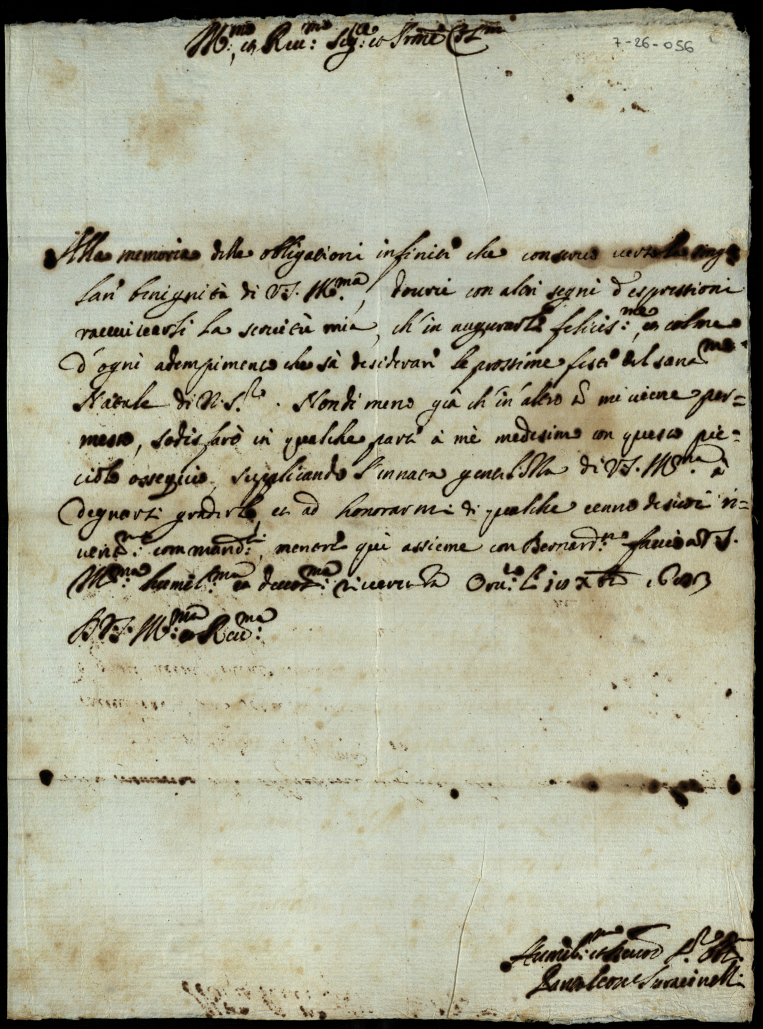 Ill:mo et Reu:mo Sig:re et Pron Col:mo
7-26-056
Alle memorie delle obligationi infinite che conseruo uerso la singo
lare benignità di V.S. Ill:ma, dourei con altri segni d'espressioni
rauuiuarli la seruitù mia, ch'in augurarle felicis:me, et colme
d'ogni adempimento che sà desiderare le prossime feste del santmo
Natale di N.S.re. Nondimeno già ch'in altro non mi uiene per=
messo, sodisfarò in qualche parte à mè medesimo con questo pic=
ciolo ossequio, supplicando l'innata gentilezza di V.S. Ill:ma à
degnarsi gradirlo, et ad honorarmi di qualche cenno de suoi ri=
ueriti:mi commandi, mentre qui assieme con Bernardno faccio à V.S.
Ill:ma humil:ma et deuot:ma riuerenza Oru:to li 10 Xbre
D V.S. Ill:ma et Reu:ma
Humil:mo et deuot S.re Obl:
Pantaleone Saracinelli